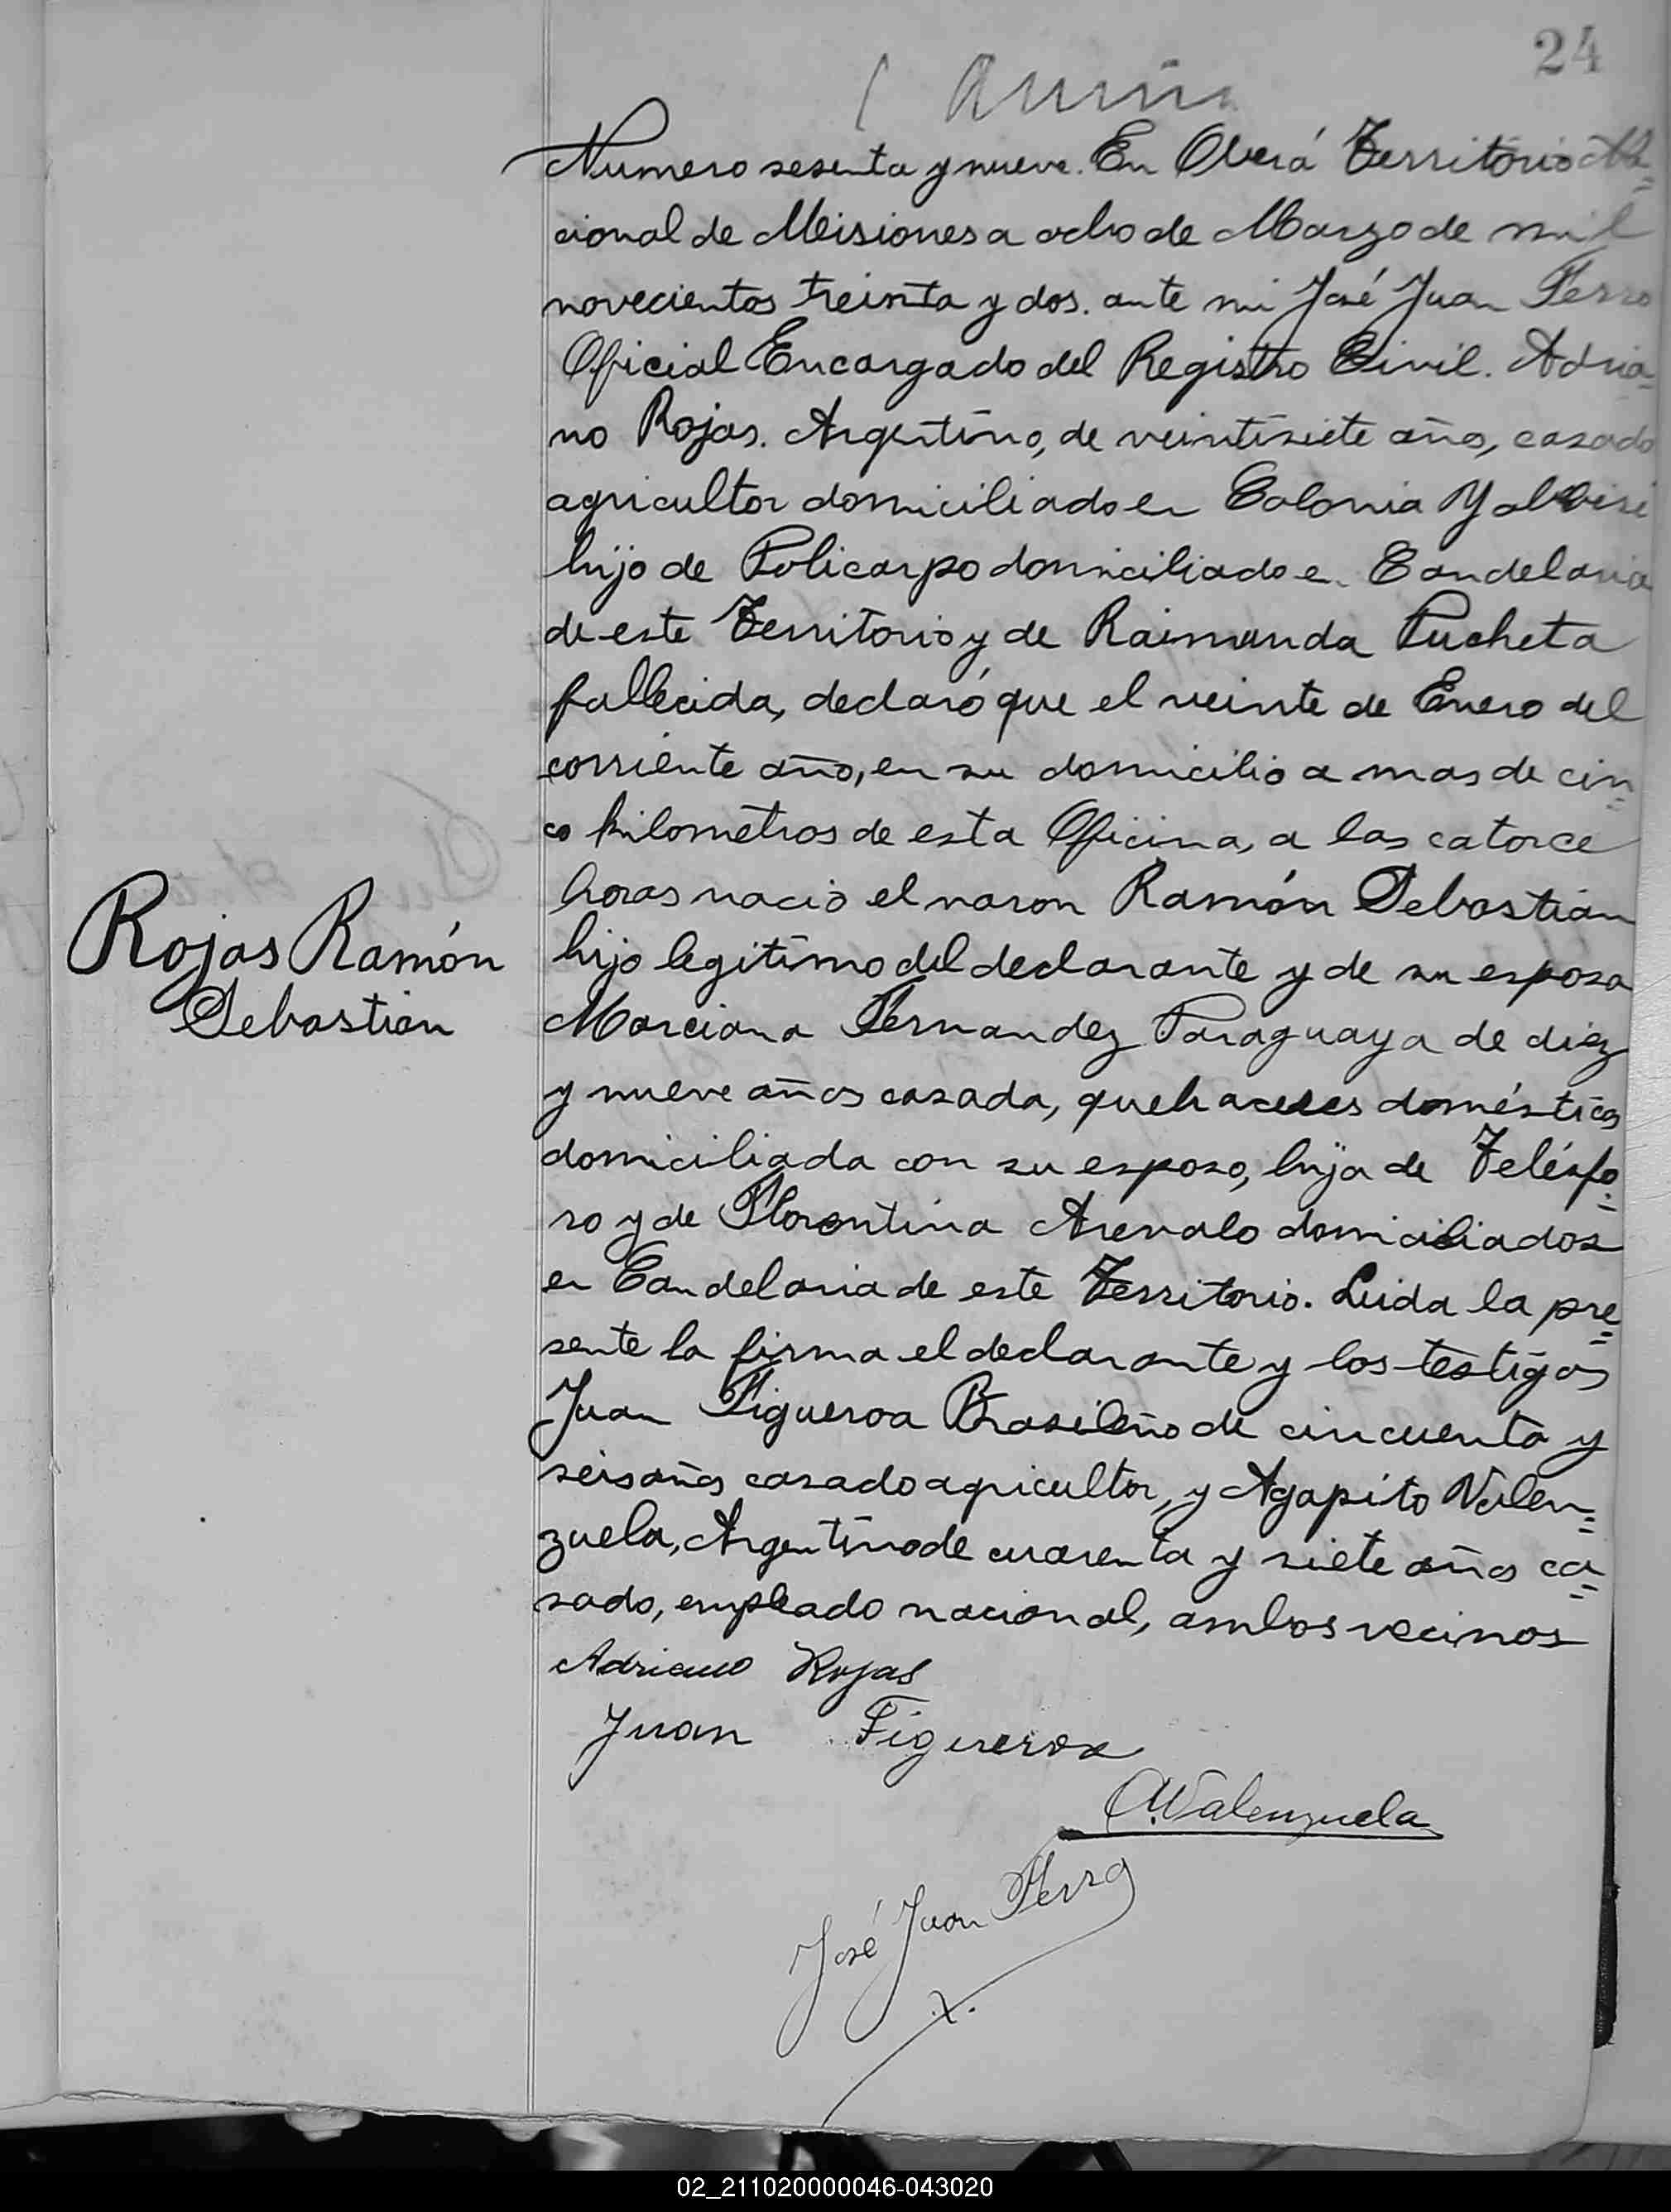 24
Numero sesenta y nueve. En Oberá Territorio Na=
cional de Misiones a ocho de Marzo de mil
novecientos treinta y dos. ante mi José Juan Ferro
Oficial Encargado del Registro Civil. Adria=
no Rojas. Argentino, de veintisiete años, casado
agricultor domiciliado en Colonia
hijo de Policarpo domiciliado en Candelaria
de este Territorio y de Raimunda Pucheta
fallecida, declaró que el veinte de Enero del
corriente año, en su domicilio a mas de cin=
co kilometros de esta Oficina, a las catorce
horas nació el varon Ramón Sebastian
Rojas Ramón
Sebastian
hijo legitimo del declarante y de su esposa
Marciana Fernandez Paraguaya de diez
y nueve años casada, quehaceres domésticos
domiciliada con su esposo, hija de Telésfo=
ro y de Florentina Arevalo domiciliados
en Candelaria de este Territorio. Leida la pre=
sente la firma el declarante y los testigos
Juan Figueroa Brasileño de cincuenta y
seis años casado agricultor, y Agapito Valen=
zuela, Argentino de cuarenta y siete años ca=
sado, empleado nacional, ambos vecinos
Adriano Rojas
Juan Figueroa
A. Valenzuela
José Juan Ferro
02_211020000046-043020